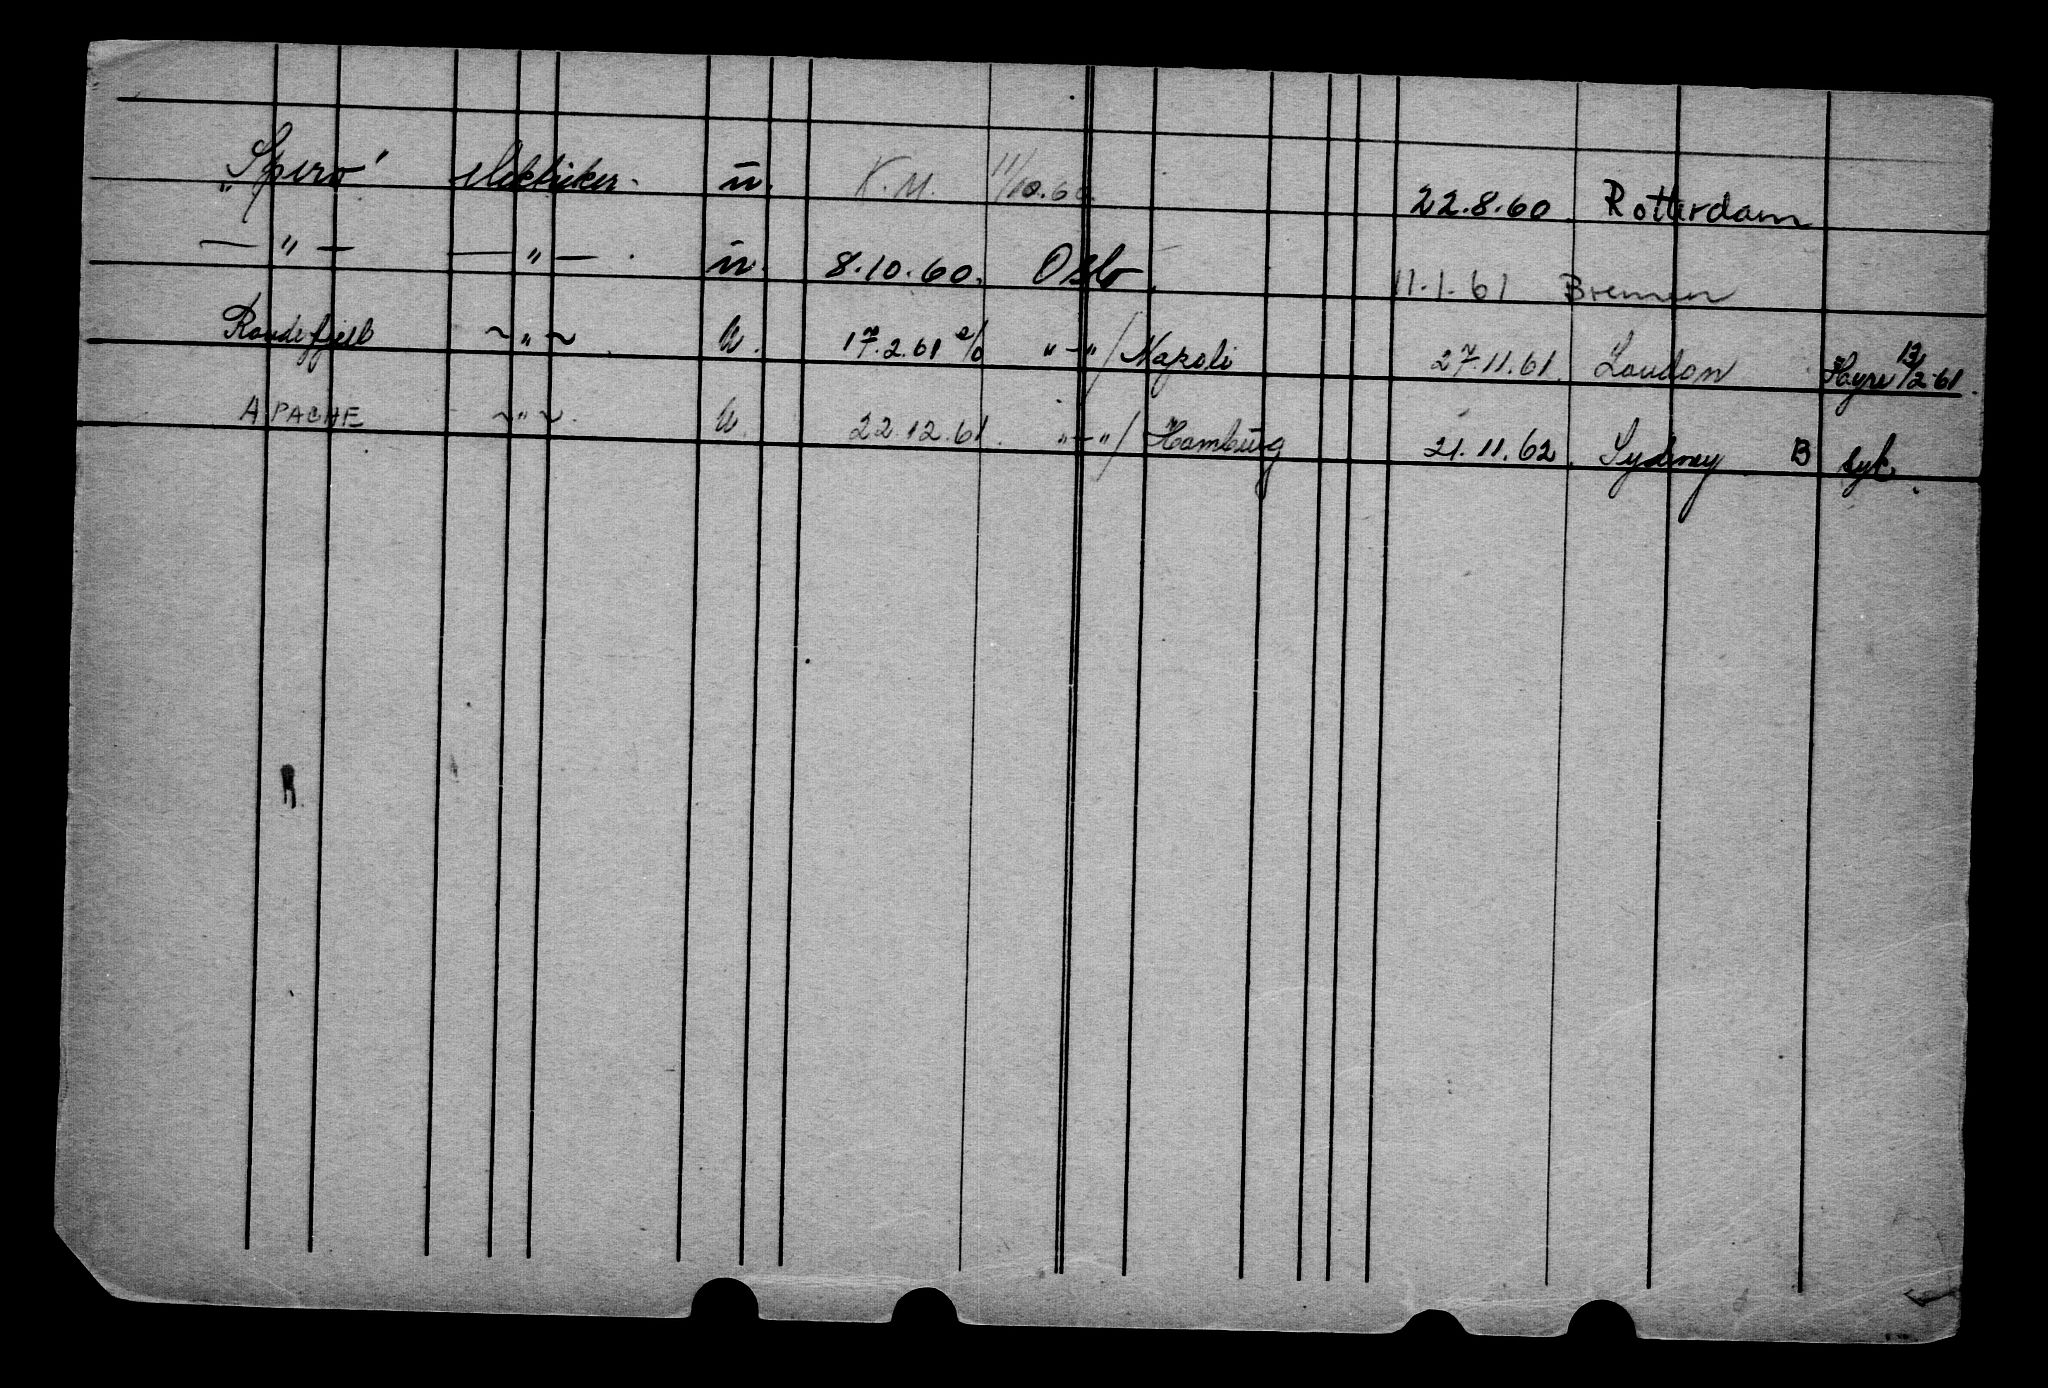 "Spero" elektriker. u. K.M. 11/10.60. 22.8.60. Rotterdam
— " — — " — . u. 8.10.60. Oslo. 11.1.61 Bremen
Rondefjell ~ " ~ . U. 17.2.61 e/o " — " / Napoli 27.11.61. London Høyre 13/2-61.
APACHE ~ " ~ . U. 22.12.61. " — " / Hamburg 21.11.62. Sydney. B syk.